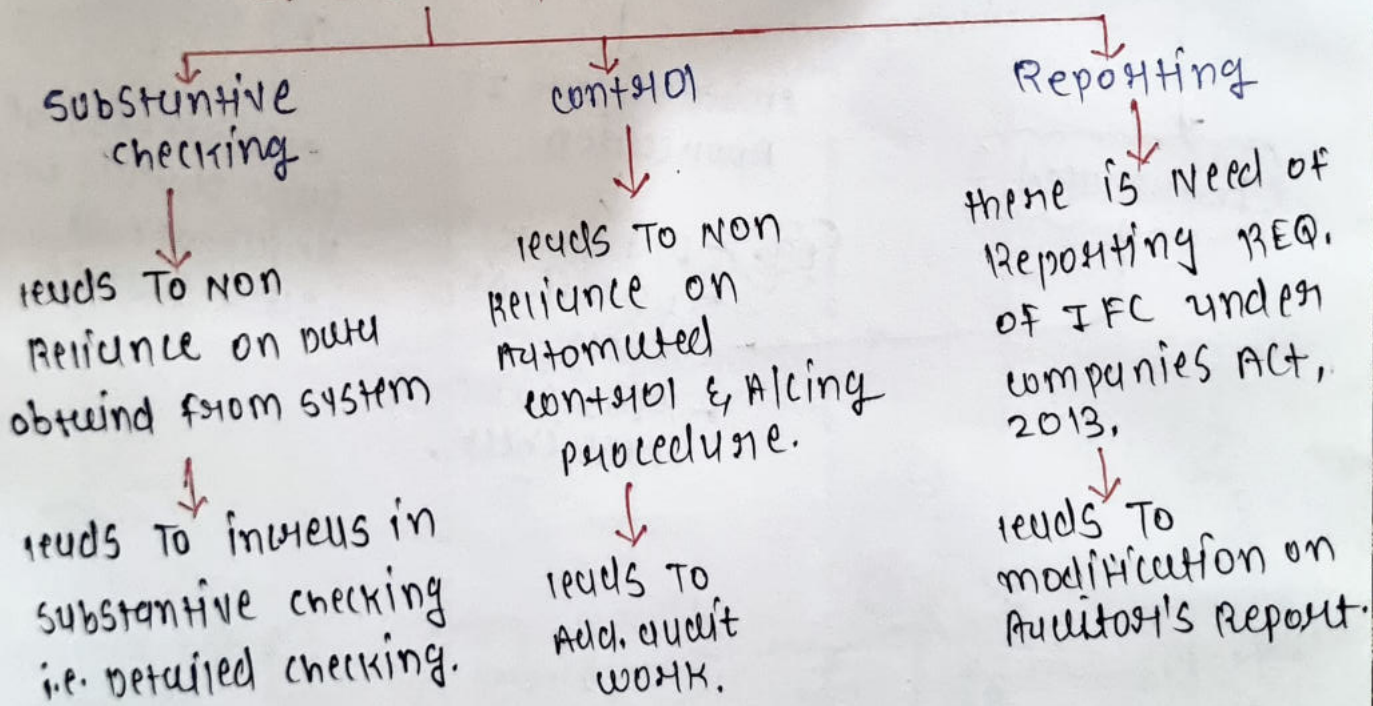 Substantive
checking
leads To Non
Reliance on Data
obtaind from system
leads To increas in
substantive checking
i.e. Detailed checking.
control
leads To Non
Reliance on
Automated
control & A/cing
procedure.
leads To
Add. audit
work.
Reporting
there is Need of
Reporting REQ.
of IFC under
companies Act,
2013.
leads To
modification on
Auditor's Report.